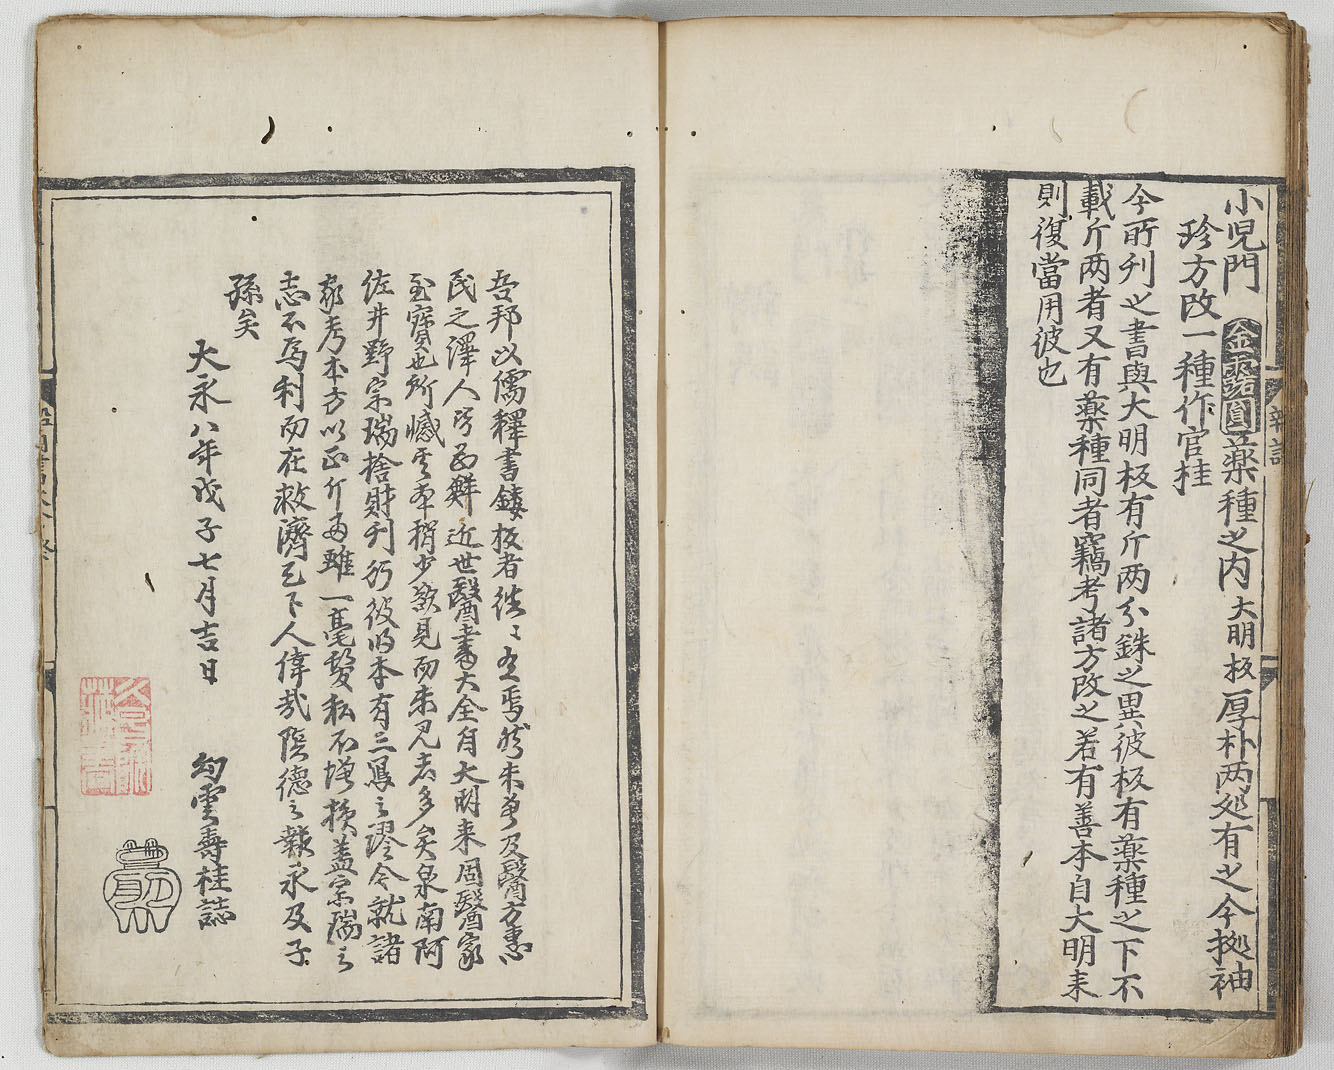 小児門 金露圓 薬種之内 大明板 厚朴两処有之今拠袖
珍方改一種作官桂
今所刋之書與大明板有斤两分銖之異彼板有薬種之下不
載斤两者又有薬種同者竊考諸方改之若有善本自大明来
則復當用彼也
吾邦以儒釋書鏤板者徃〻在焉然未曾及醫方惠
民之澤人皆為鮮近世醫書大全自大明来固醫家
至寶也所憾其本稍少欲見而未見者多矣泉南阿
佐井野宗瑞捨財刋行彼旧本有三冩之謬今就諸
家考本方以正斤两雖一毫髮私不増損蓋宗瑞之
志不為利而在救濟天下人偉哉陰德之報永及子
孫矣
大永八年戊子七月吉日
幻雲壽桂誌